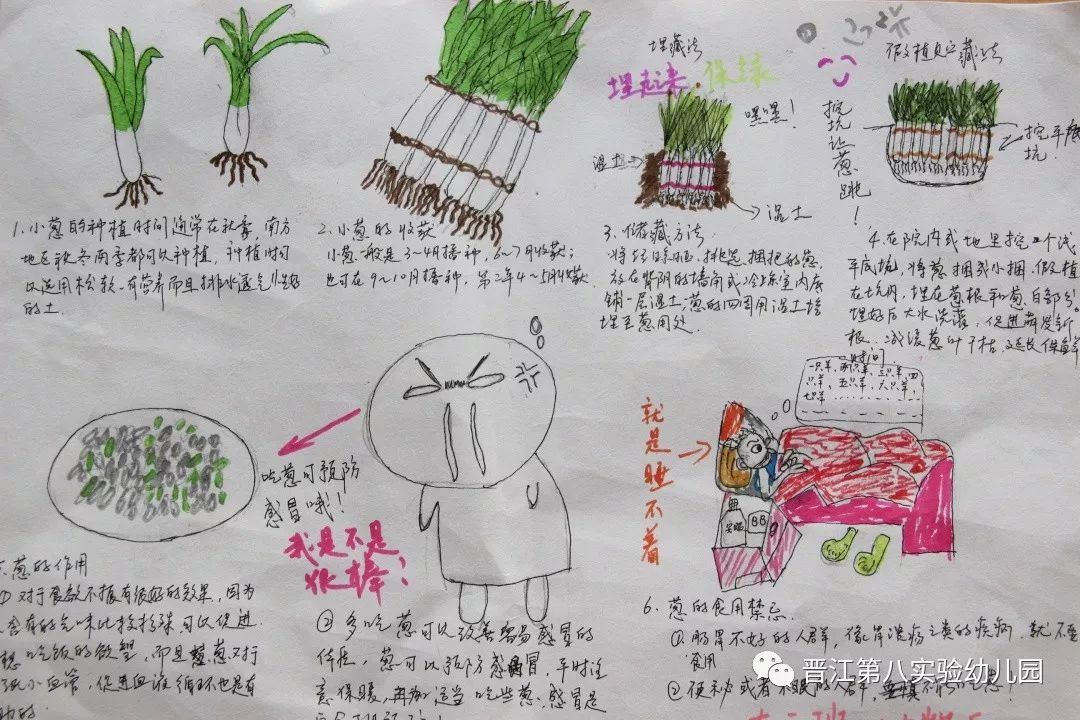 埋藏法
埋起来,保绿
嘿嘿!
湿土
湿土
假植贮藏法
挖坑让葱跳!
挖平底坑.
1.小葱的种植时间通常在秋季,南方
地区秋冬两季都可以种植,种植时可
以选用松软、有营养而且排水透气
的土.
2.小葱的收获
小葱一般是3~4月播种,6~7月收获;
也可在9~10月播种,第二年4~5月收获
3.储藏方法:
放在背阴的墙角或冷凉室内底
铺一层湿土,葱的四周用湿土培
埋至葱
4.在院内或地里挖一个浅
平底坑,将葱捆成小捆,假植
在坑内,埋在葱根和葱白部分.
埋好后大水浇灌,促进萌发新
根,减缓葱叶干枯,延长保鲜
时间.
吃葱可预防
感冒哦!
我是不是
很棒?
就是睡不着
一只羊,两只羊,三只羊,四
只羊,五只羊,六只羊,
七只羊
88
葱的作用
①对于食欲不振有很好的效果,因为
含有的气味比较特殊,可以促进
想吃饭的欲望,而且葱对于
缩小血管,促进血液循环也是有
助的.
②多吃葱可以改善容易感冒的
体质,葱可以预防感冒,平时注
意保暖,再加适当吃些葱,感冒是
6.葱的食用禁忌.
①肠胃不好的人群,像胃溃疡之类的疾病,就不要
食用
②便秘或者不眠的人群,
晋江第八实验幼儿园